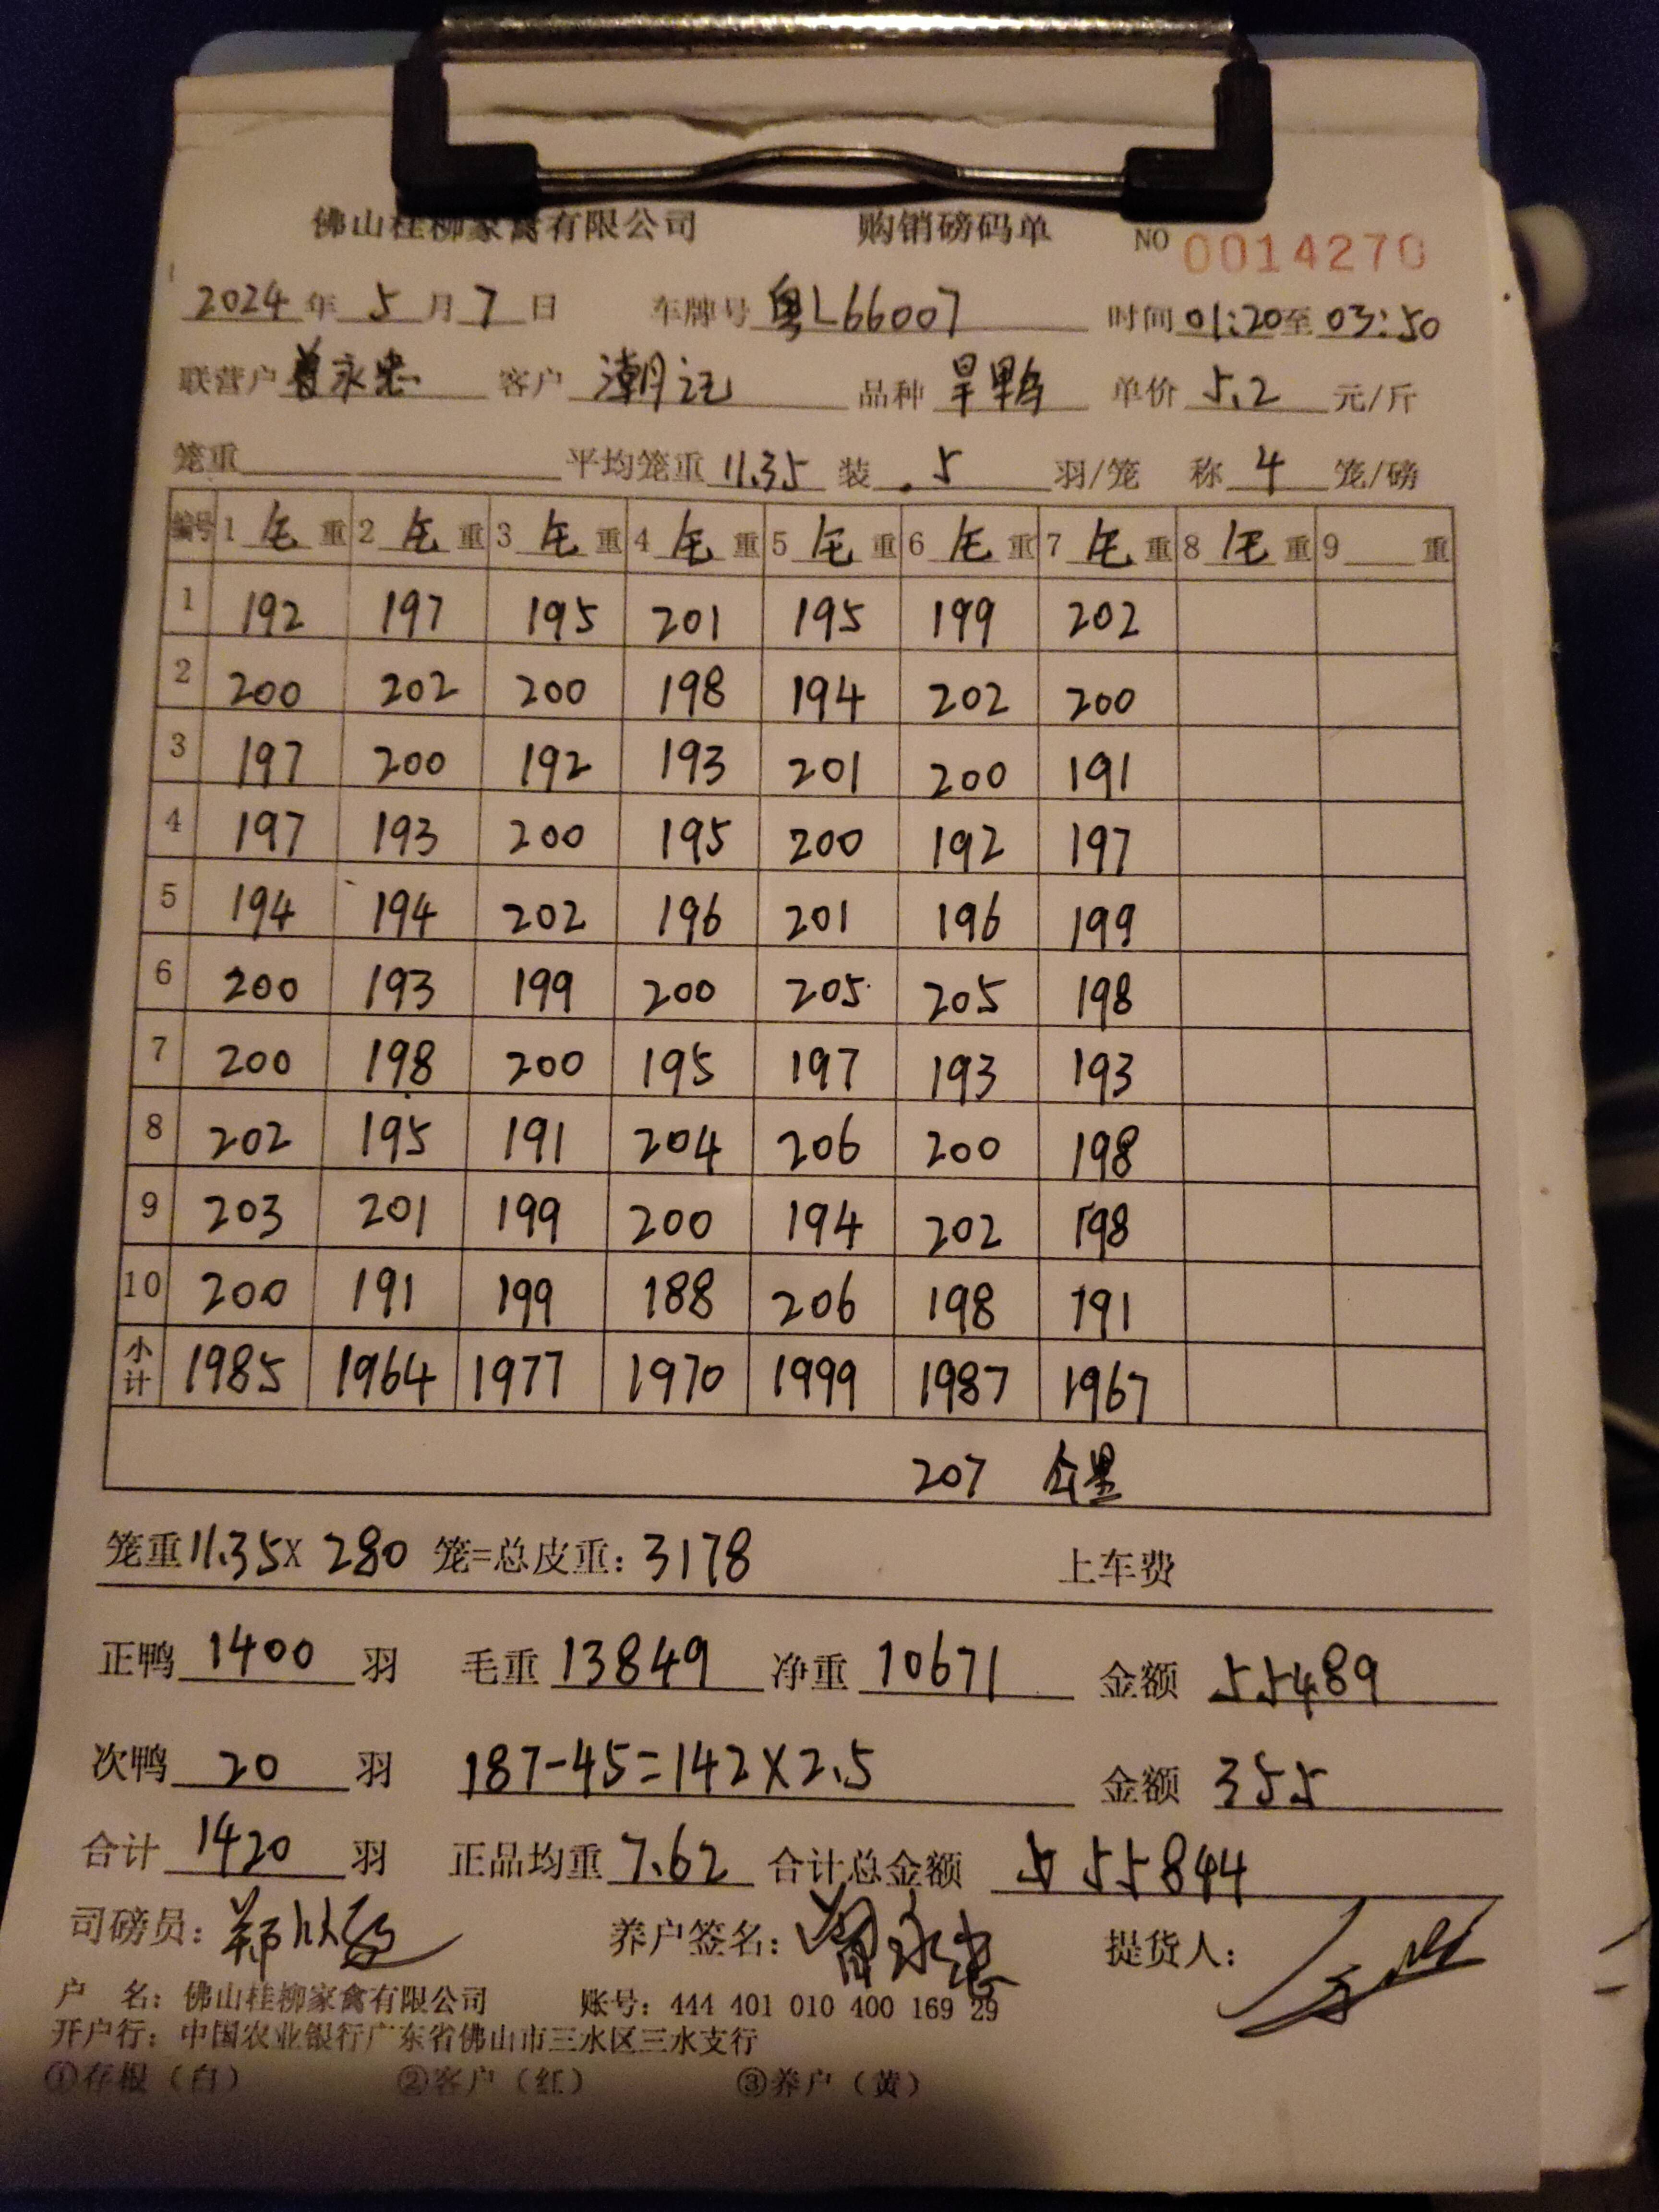 佛山桂柳家禽有限公司 购销磅码单 NO 0014270
2024年5月7日 车牌号 粤L66007 时间 01:20至03:50
联营户 曾永忠 客户 潮记 品种 旱鸭 单价 5.2 元/斤
笼重 平均笼重 11.35 装 5 羽/笼 称 4 笼/磅
编号 1 毛 重 2 毛 重 3 毛 重 4 毛 重 5 毛 重 6 毛 重 7 毛 重 8 毛 重 9 重
1 192 197 195 201 195 199 202
2 200 202 200 198 194 202 200
3 197 200 192 193 201 200 191
4 197 193 200 195 200 192 197
5 194 194 202 196 201 196 199
6 200 193 199 200 205 205 198
7 200 198 200 195 197 193 193
8 202 195 191 204 206 200 198
9 203 201 199 200 194 202 198
10 200 191 199 188 206 198 191
小计 1985 1964 1977 1970 1999 1987 1967
207 公里
笼重 11.35 X 280 笼=总皮重: 3178 上车费
正鸭 1400 羽 毛重 13849 净重 10671 金额 55489
次鸭 20 羽 187-45=142X2.5 金额 355
合计 1420 羽 正品均重 7.62 合计总金额 55844
司磅员: 养户签名: 曾永忠 提货人:
户 名: 佛山桂柳家禽有限公司 账号: 444 401 010 400 169 29
开户行: 中国农业银行广东省佛山市三水区三水支行
①存根（白） ②客户（红） ③养户（黄）